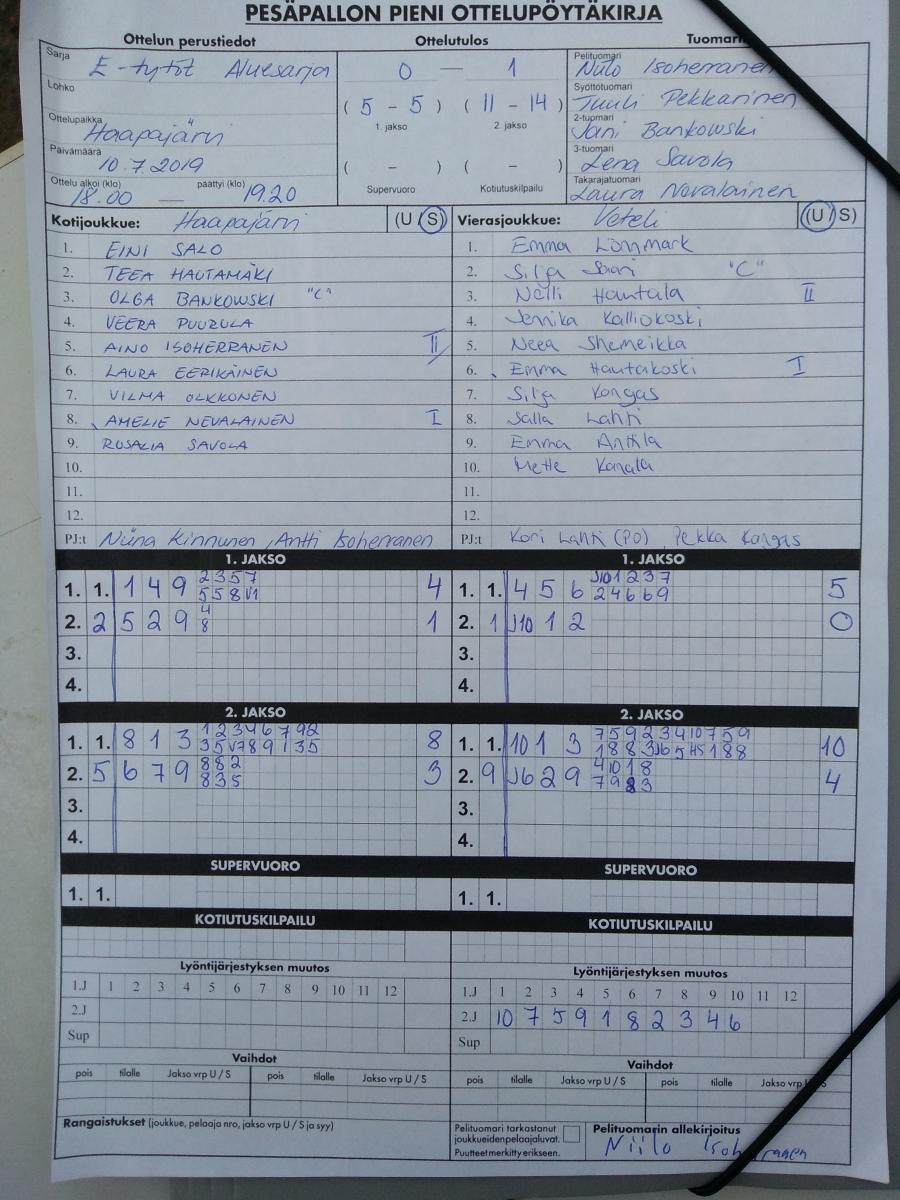 PESÄPALLON PIENI OTTELUPÖYTÄKIRJA
Ottelun perustiedot
Ottelutulos
Sarja
E-tytöt Aluesarja
0 — 1
Pelituomari
Isoherranen
Lohko
( 5 - 5 ) ( 11 - 14 )
1. jakso 2. jakso
Syöttötuomari
Tuuli Pekkarinen
Ottelupaikka
Haapajärvi
2-tuomari
Jani Bankowski
Päivämäärä
10.7.2019
( - ) ( - )
3-tuomari
Lena Savola
Ottelu alkoi (klo) päättyi (klo)
18.00 — 19.20
Supervuoro Kotiutuskilpailu
Takarajatuomari
Laura Nevalainen
Kotijoukkue: Haapajärvi (U / S)
1. EINI SALO
2. TEEA HAUTAMÄKI
3. OLGA BANKOWSKI "C"
4. VEERA PUURULA
5. AINO ISOHERRANEN II
6. LAURA EERIKÄINEN
7. VILMA OLKKONEN
8. AMELIE NEVALAINEN I
9. ROSALIA SAVOLA
10.
11.
12.
PJ:t Niina Kinnunen, Antti Isoherranen
Vierasjoukkue: Veteli (U / S)
1. Emma Lönnmark
2. Silja "C"
3. Nelli Hautala II
4. Jennika Kalliokoski
5. Neea Shemeikka
6. Emma Hautakoski I
7. Silja Kangas
8. Salla Lahti
9. Emma Anttila
10. Mette Kanala
11.
12.
PJ:t Kari Lahti (PO), Pekka Kangas
1. JAKSO
1. 1. 1 4 9 2 3 5 7 4
5 5 8 V1
2. 2 5 2 9 4 1
8
3.
4.
1. JAKSO
1. 1. 4 5 6 J10 1 2 3 7 5
2 4 6 6 9
2. 1 J10 1 2 0
3.
4.
2. JAKSO
1. 1. 8 1 3 1 2 3 4 6 7 9 2 8
3 5 V7 8 9 1 3 5
2. 5 6 7 9 8 8 2 3
8 3 5
3.
4.
2. JAKSO
1. 1. 10 1 3 7 5 9 2 3 4 10 7 5 9 10
1 8 8 3 J6 5 H5 1 8 8
2. 9 J6 2 9 4 10 1 8 4
7 9 8 3
3.
4.
SUPERVUORO
1. 1.
SUPERVUORO
1. 1.
KOTIUTUSKILPAILU
KOTIUTUSKILPAILU
Lyöntijärjestyksen muutos
1.J 1 2 3 4 5 6 7 8 9 10 11 12
2.J
Sup
Lyöntijärjestyksen muutos
1.J 1 2 3 4 5 6 7 8 9 10 11 12
2.J 10 7 5 9 1 8 2 3 4 6
Sup
Vaihdot
pois tilalle Jakso vrp U / S pois tilalle Jakso vrp U / S
Vaihdot
pois tilalle Jakso vrp U / S pois tilalle Jakso vrp / S
Rangaistukset (joukkue, pelaaja nro, jakso vrp U / S ja syy)
Pelituomari tarkastanut
joukkueiden pelaajaluvat.
Puutteet merkitty erikseen.
Pelituomarin allekirjoitus
Niilo